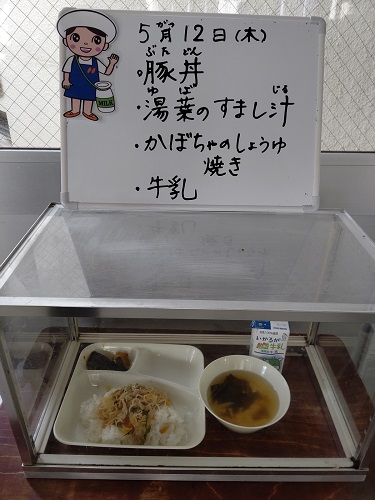 5月12日(木)
がつ
ぶた どん
・豚丼
ゆ ば じる
・湯葉のすまし汁
・かぼちゃのしょうゆ
焼き
・牛乳
MILK
いかるが
牛乳